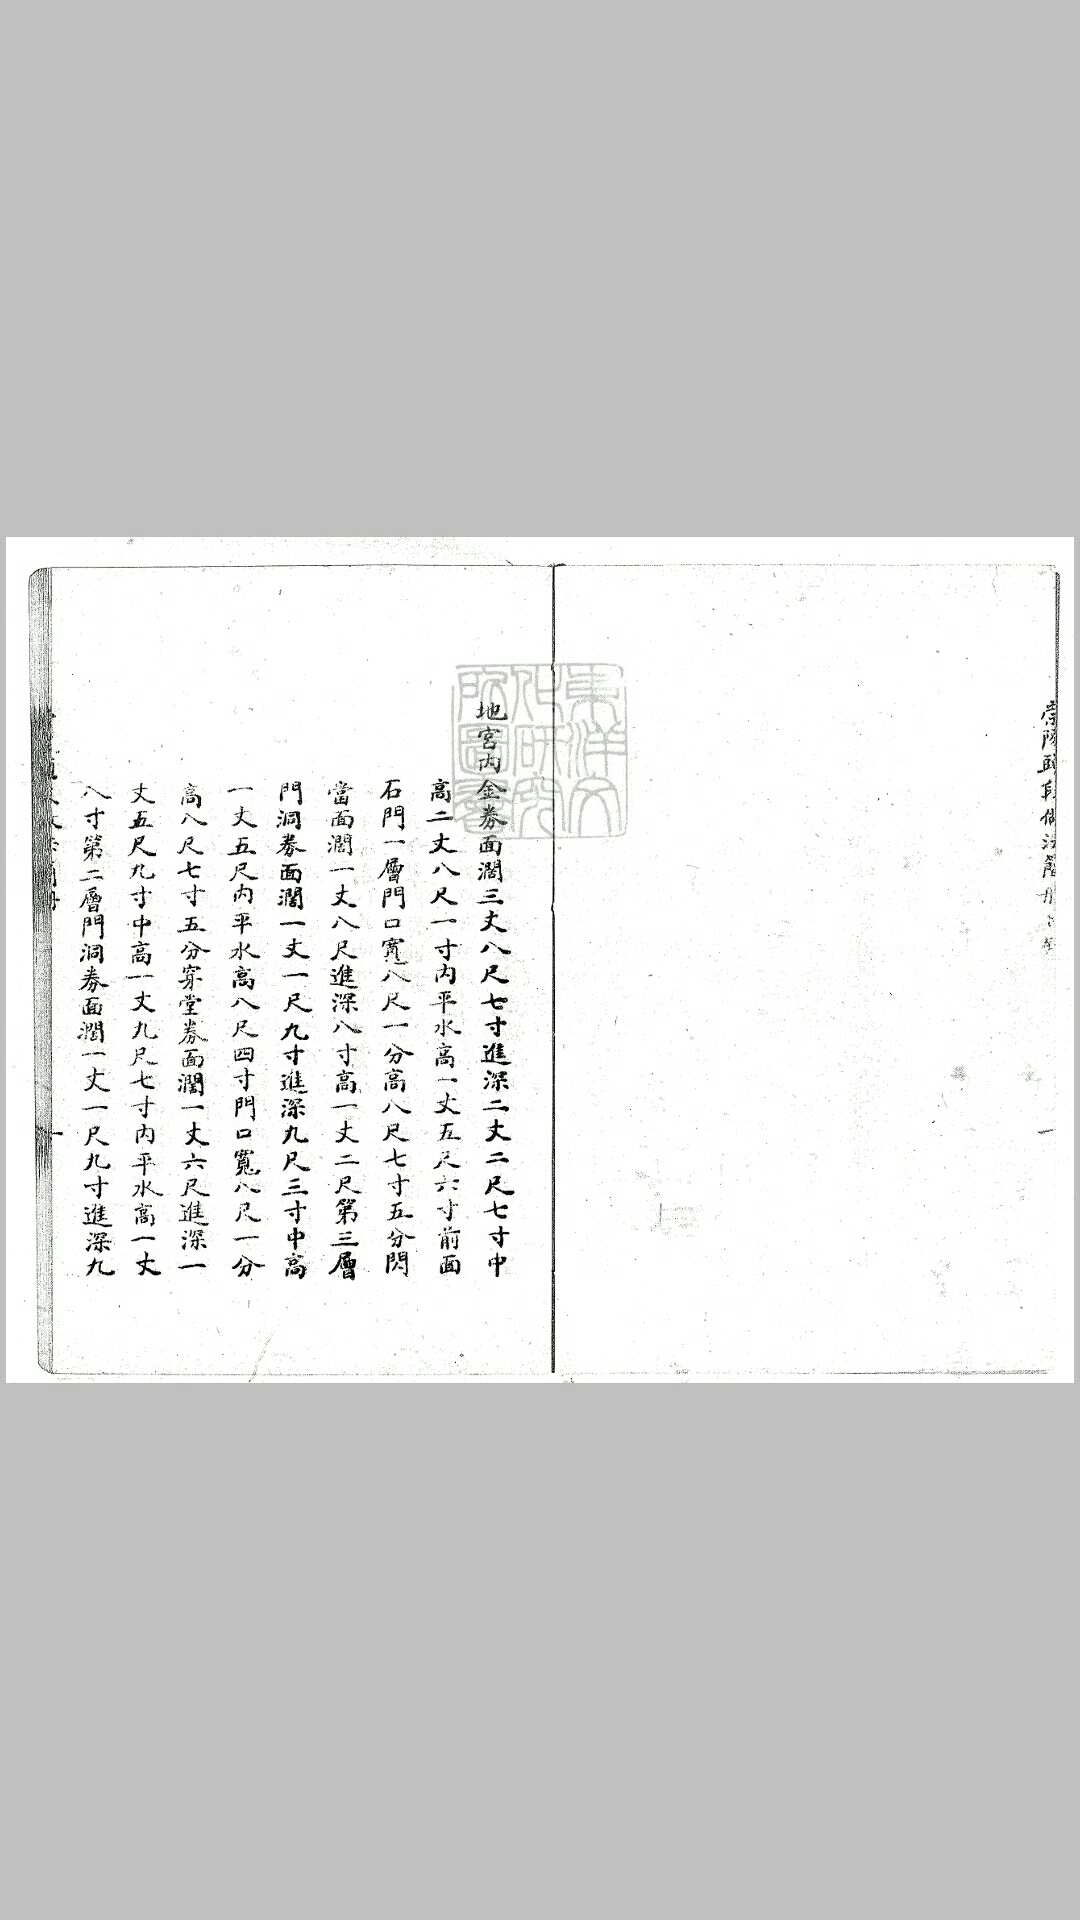 地宮內金券面濶三丈八尺七寸進深二丈二尺七寸中
高二丈八尺一寸內平水高一丈五尺六寸前面
石門一層門口寬八尺一分高八尺七寸五分閃
當面濶一丈八尺進深八寸高一丈二尺第三層
門洞券面濶一丈一尺九寸進深九尺三寸中高
一丈五尺內平水高八尺四寸門口寬八尺一分
高八尺七寸五分穿堂券面濶一丈六尺進深一
丈五尺九寸中高一丈九尺七寸內平水高一丈
八寸第二層門洞券面濶一丈一尺九寸進深九
東洋文
化研究
所圖書
一
一